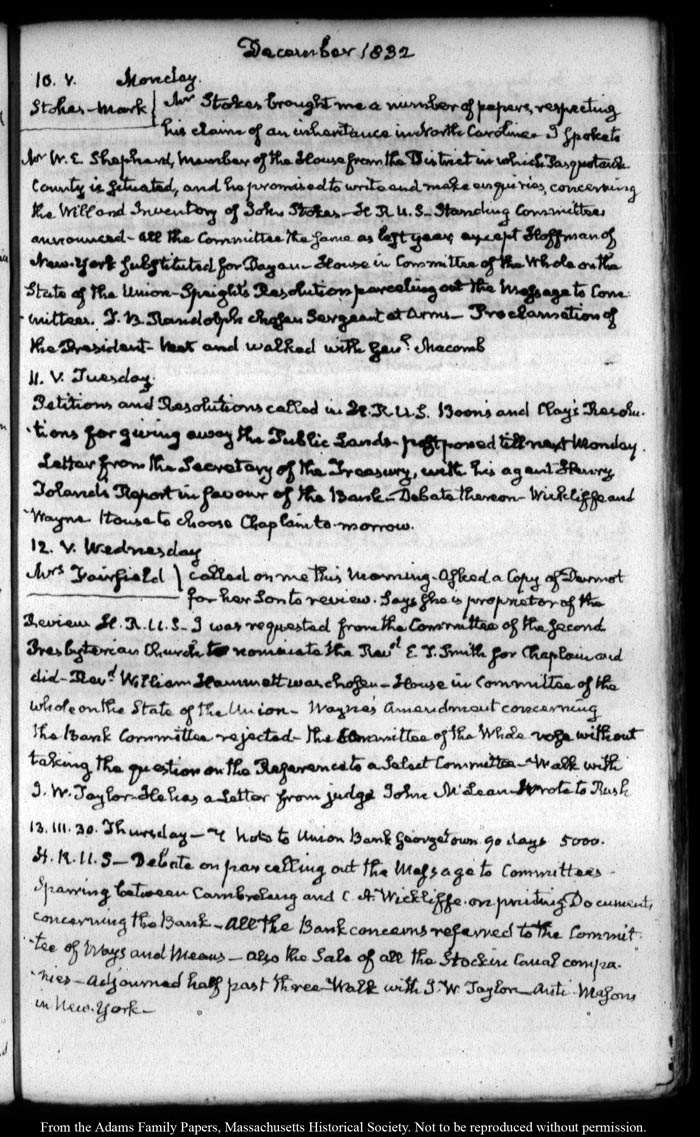 December 1832
10. V. Monday.
Stokes-Mark } Mr Stokes brought me a number of papers, respecting
his claim of an inheritance in North Carolina. I spoke to
Mr W. E. Shephard, Member of the House from the District in which Pasquotank
County is situated, and he promised to write and make enquiries, concerning
the Will and Inventory of John Stokes- H. R. U. S- Standing Committees
announced- all the Committee the same as last year, except Hoffman of
New-York substituted for Dayan- House in Committee of the Whole on the
State of the Union- Speight's Resolutions parcelling out the Message to Com-
mittees. T. B. Randolph chosen Sergeant at Arms- Proclamation of
the President- Met and walked with Genl. Macomb
11. V. Tuesday.
Petitions and Resolutions called in H. R. U. S. Boon's and Clay's Resolu-
tions for giving away the Public Lands- postponed till next Monday.
Letter from the Secretary of the Treasury, with his agent Henry
Toland's Report in favour of the Bank- Debate thereon- Wickliffe and
Wayne House to choose Chaplain to-morrow.
12. V. Wednesday
Mrs Fairfield } called on me this Morning. Asked a Copy of Dermot
for her Son to review. Says she is proprietor of the
Review H. R. U. S- I was requested from the Committee of the Second
Presbyterian Church to nominate the Revd. E. T. Smith for Chaplain and
did- Revd. William Hammett was chosen- House in Committee of the
whole on the State of the Union- Wayne's Amendment concerning
the Bank Committee rejected- the Committee of the Whole rose without
taking the question on the Reference to a Select Committee- Walk with
J. W. Taylor- He has a Letter from judge John McLean- Wrote to Rush
13. III. 30. Thursday- Note to Union Bank Georgetown 90 days 5000.
H. R. U. S- Debate on parcelling out the Message to Committees-
Sparring between Cambreleng and C. A. Wickliffe. on printing Documents
concerning the Bank- All the Bank concerns referred to the Commit-
tee of Ways and Means- also the Sale of all the Stock in Canal compa-
nies- Adjourned half past three- Walk with J. W. Taylor- Anti-Masons
in New-York-
From the Adams Family Papers, Massachusetts Historical Society. Not to be reproduced without permission.